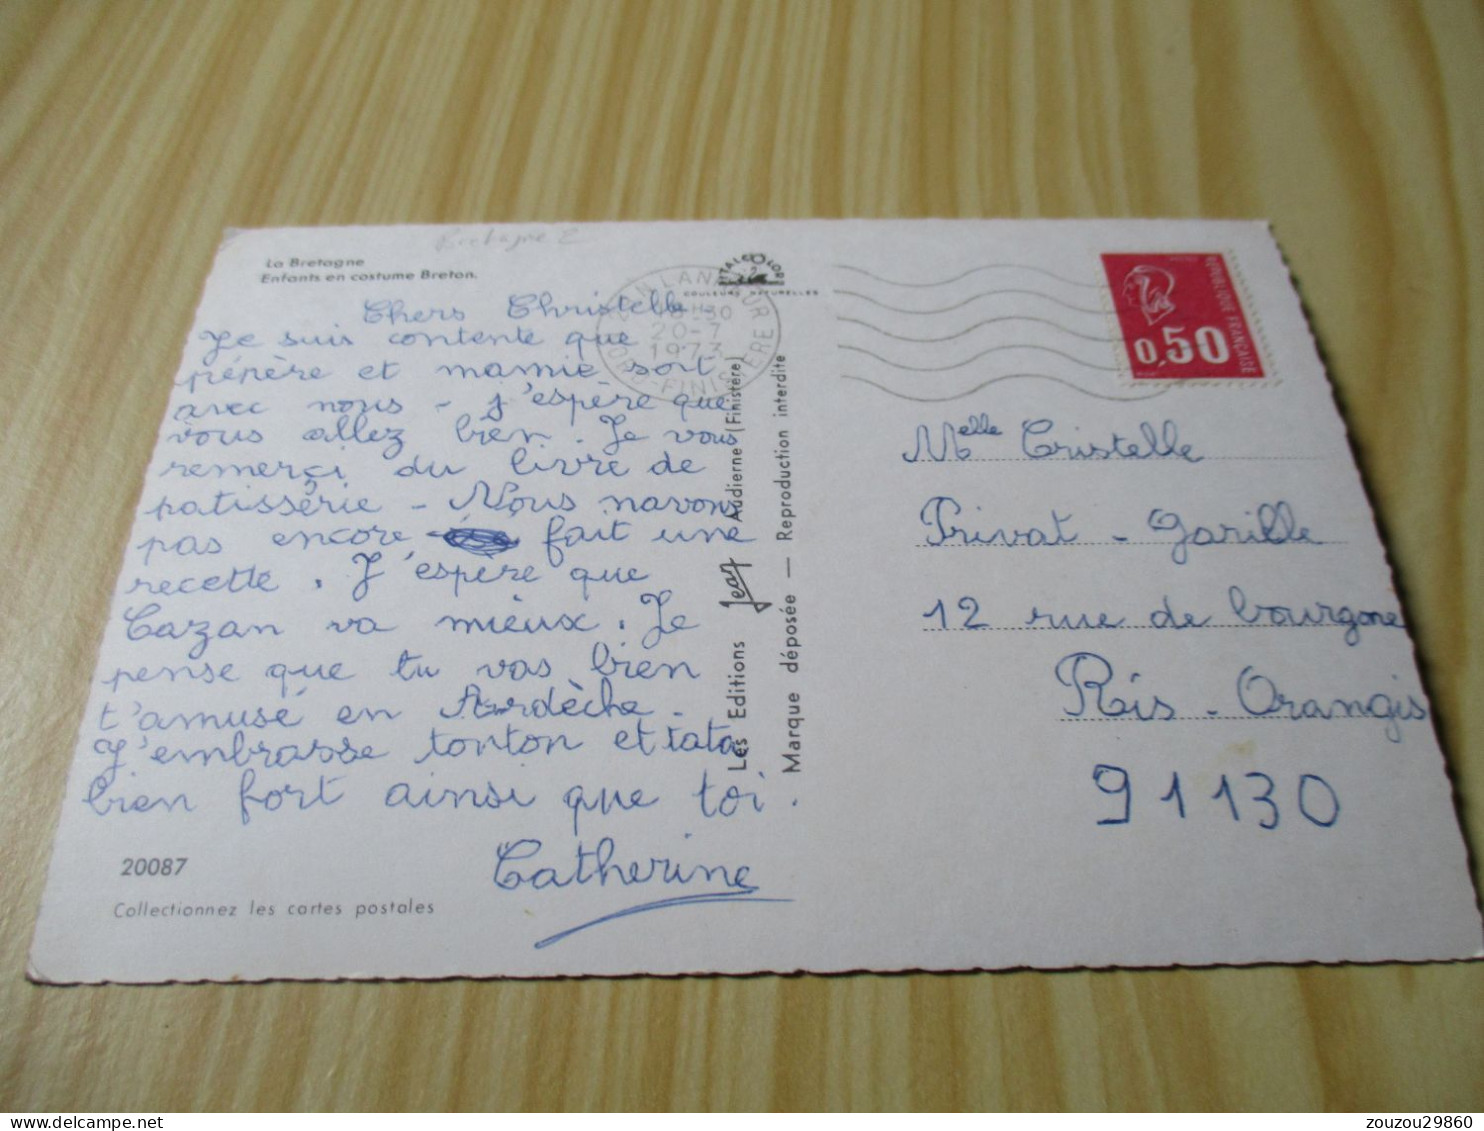 Bretagne 2
La Bretagne
Enfants en costume Breton.
Chers Christelle
Je suis contente que
pépère et mamie sort
avec nous - j'espère que
vous allez bien. Je vous
remerçi du livre de
patissérie - Nous navons
pas encore fait une
recette. J'espère que
Cazan va mieux. Je
pense que tu vas bien
t'amusé en Ardèche -
J'embrasse tonton et tata
bien fort ainsi que toi.
Catherine
20087
Collectionnez les cartes postales
COULEURS NATURELLES
20-7
1973
Les Editions Jean Audierne (Finistère)
Marque déposée — Reproduction interdite
REPUBLIQUE FRANÇAISE
0,50
Melle Cristelle
Privat - Garille
12 rue de bourgone
Ris - Orangis
91130
zouzou29860